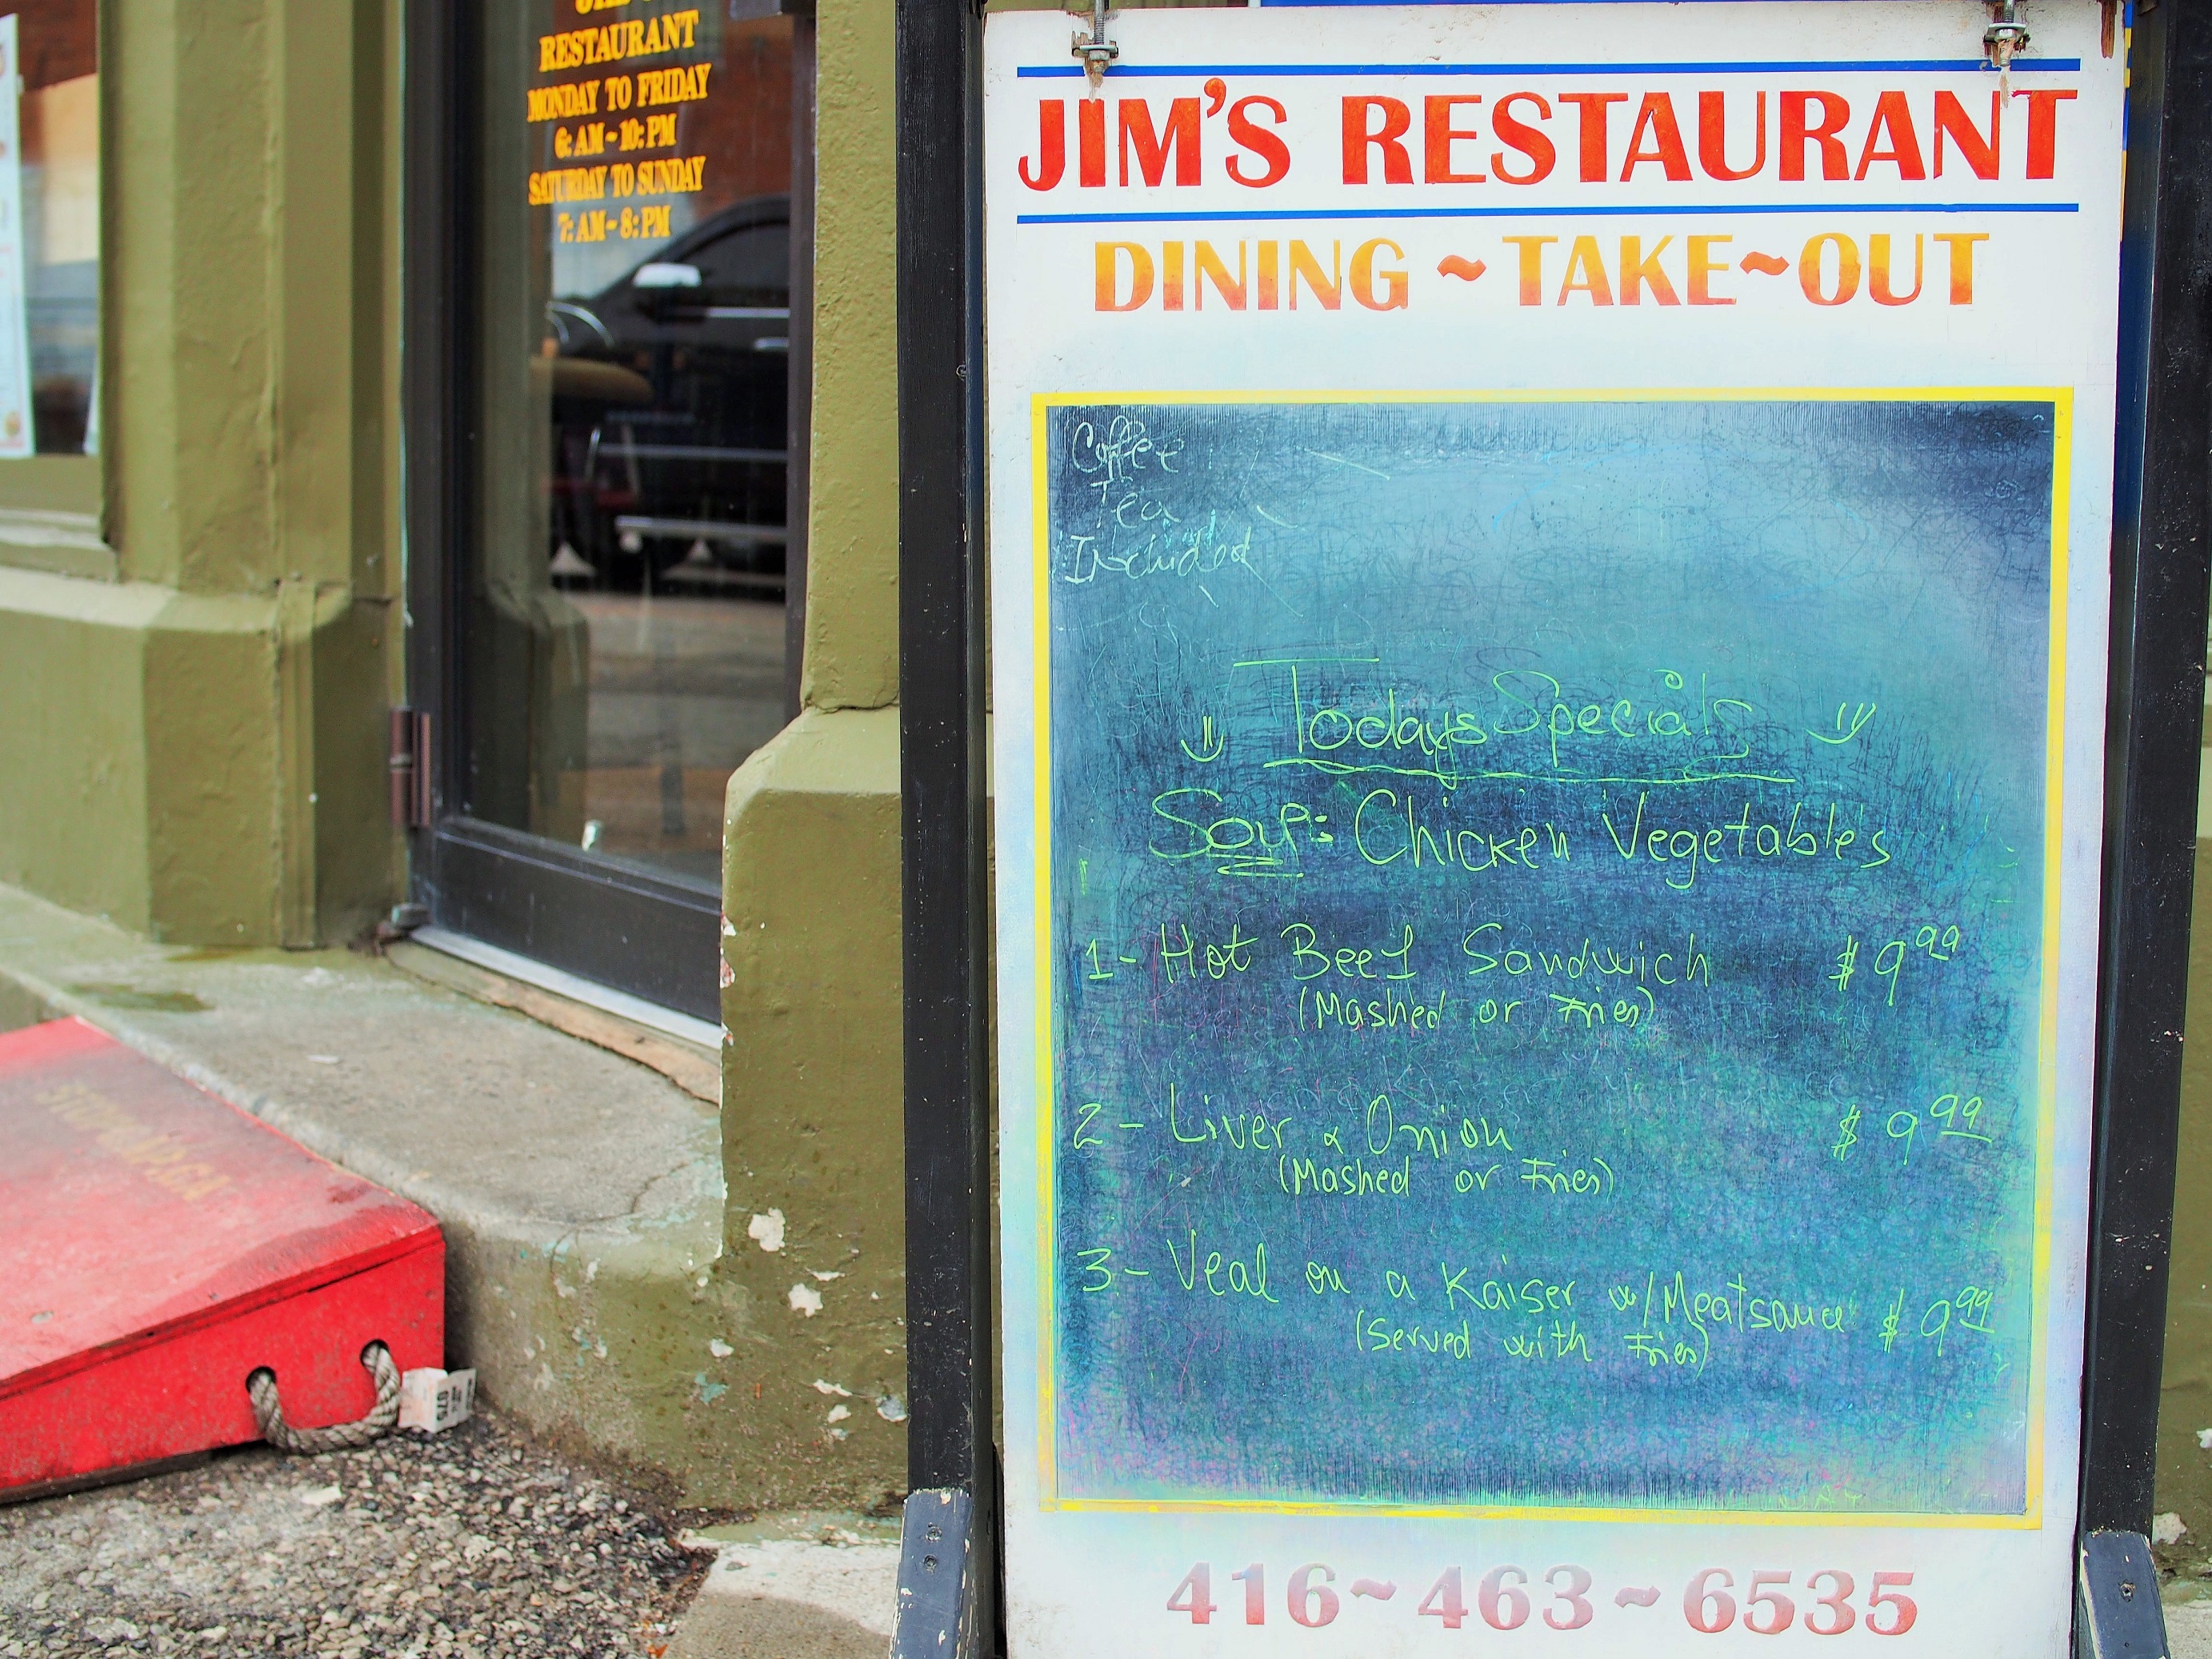 RESTAURANT
MONDAY TO FRIDAY
6: AM ~ 10: PM
SATURDAY TO SUNDAY
7: AM ~ 8: PM
JIM'S RESTAURANT
DINING ~ TAKE ~ OUT
Coffee
Tea
Included
Todays Specials
Soup: Chicken Vegetables
1 - Hot Beef Sandwich $ 9 99
(Mashed or Fries)
2 - Liver & Onion $ 9 99
(Mashed or Fries)
3 - Veal on a Kaiser w/Meatsauce $ 9 99
(Served with Fries)
416 ~ 463 ~ 6535
STOPGAP.CA